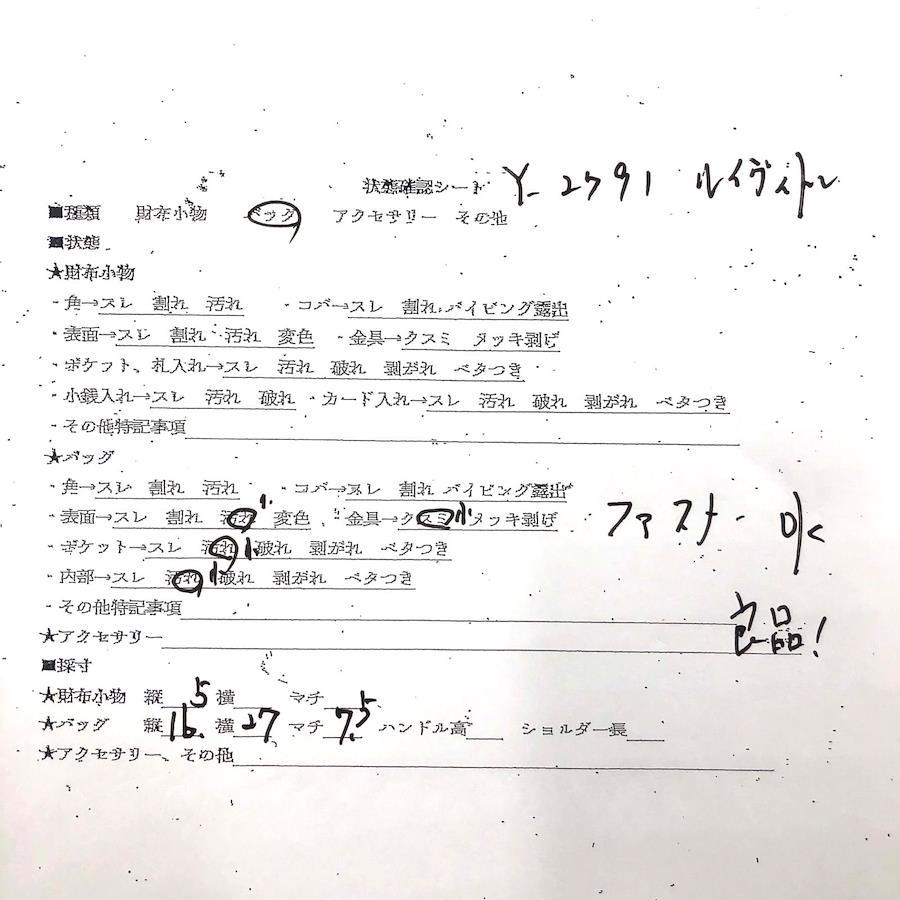 状態確認シート Y-2791 ルイヴィトン
■種類 財布小物 バッグ アクセサリー その他
■状態
★財布小物
・角→スレ 割れ 汚れ ・コバ→スレ 割れ パイピング露出
・表面→スレ 割れ 汚れ 変色 ・金具→クスミ メッキ剥げ
・ポケット、札入れ→スレ 汚れ 破れ 剥がれ ベタつき
・小銭入れ→スレ 汚れ 破れ ・カード入れ→スレ 汚れ 破れ 剥がれ ベタつき
・その他特記事項
★バッグ
・角→スレ 割れ 汚れ ・コバ→スレ 割れ パイピング露出
・表面→スレ 割れ 汚れ小 変色 ・金具→クスミ小 メッキ剥げ ファスナー
・ポケット→スレ 汚れ小 破れ 剥がれ ベタつき
・内部→スレ 汚れ小 破れ 剥がれ ベタつき
・その他特記事項 良品!
★アクセサリー
■採寸
★財布小物 縦 横 マチ
★バッグ 縦16.5 横27 マチ7.5 ハンドル高 ショルダー長
★アクセサリー、その他